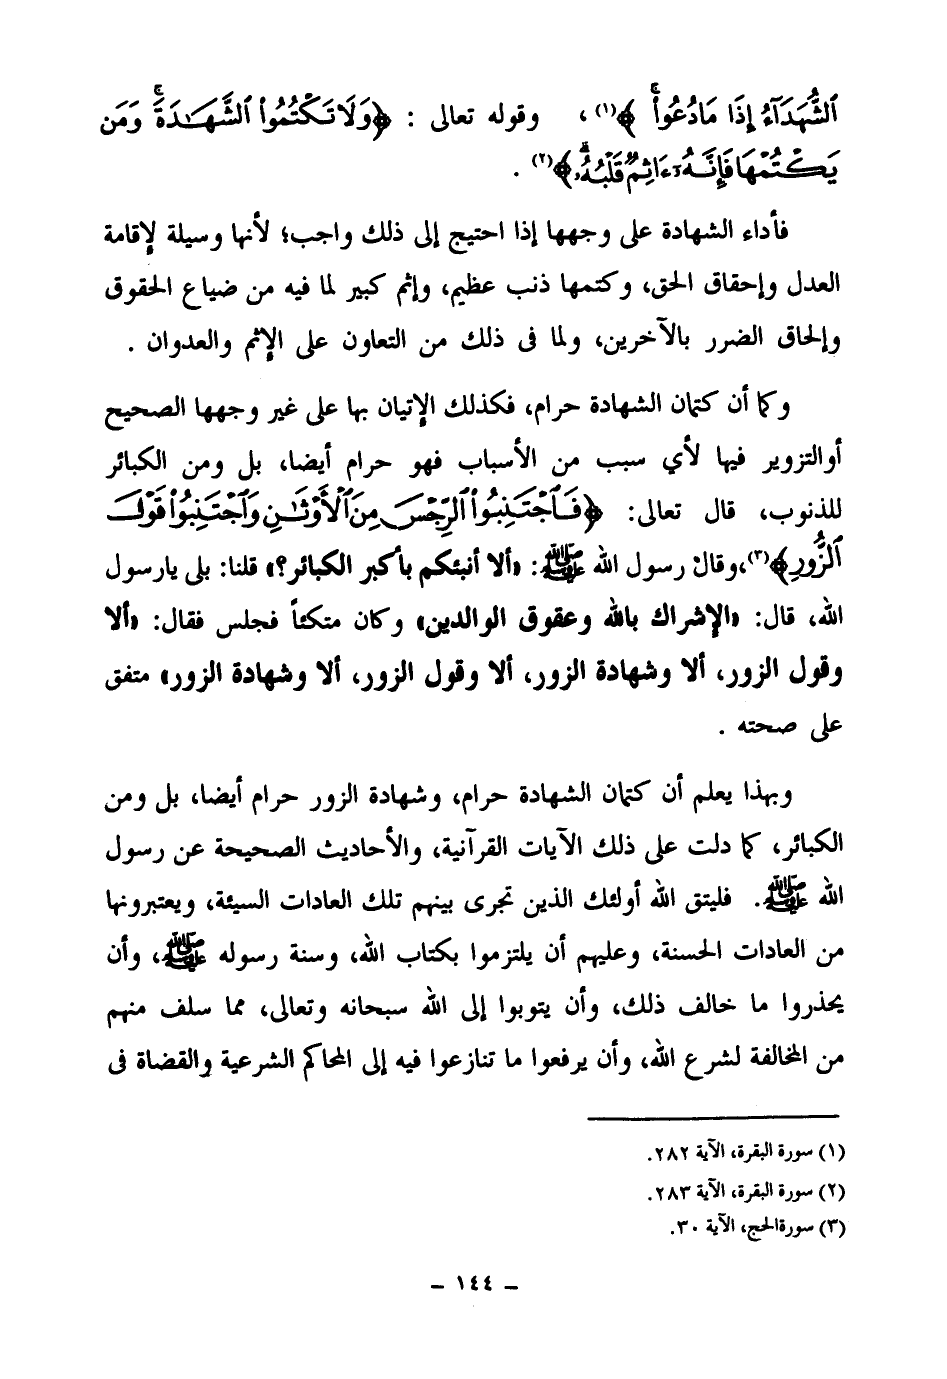 ٱلشُّهَدَآءُ إِذَا مَادُعُواْۚ﴾(١)، وقوله تعالى : ﴿وَلَا تَكۡتُمُواْ ٱلشَّهَٰدَةَۚ وَمَن
يَكۡتُمۡهَا فَإِنَّهُۥٓ ءَاثِمٞ قَلۡبُهُۥۗ﴾(٢) .
فأداء الشهادة على وجهها إذا احتيج إلى ذلك واجب؛ لأنها وسيلة لإقامة
العدل وإحقاق الحق، وكتمها ذنب عظيم، وإثم كبير لما فيه من ضياع الحقوق
وإلحاق الضرر بالآخرين، ولما فى ذلك من التعاون على الإثم والعدوان .
وكما أن كتمان الشهادة حرام، فكذلك الإتيان بها على غير وجهها الصحيح
أوالتزوير فيها لأي سبب من الأسباب فهو حرام أيضا، بل ومن الكبائر
للذنوب، قال تعالى: ﴿فَٱجۡتَنِبُواْ ٱلرِّجۡسَ مِنَ ٱلۡأَوۡثَٰنِ وَٱجۡتَنِبُواْ قَوۡلَ
ٱلزُّورِ﴾(٣)،وقال رسول الله ﷺ: «ألا أنبئكم بأكبر الكبائر؟» قلنا: بلى يارسول
الله، قال: «الإشراك بالله وعقوق الوالدين» وكان متكئاً فجلس فقال: «ألا
وقول الزور، ألا وشهادة الزور، ألا وقول الزور، ألا وشهادة الزور» متفق
على صحته .
وبهذا يعلم أن كتمان الشهادة حرام، وشهادة الزور حرام أيضا، بل ومن
الكبائر، كما دلت على ذلك الآيات القرآنية، والأحاديث الصحيحة عن رسول
الله ﷺ. فليتق الله أولئك الذين تجرى بينهم تلك العادات السيئة، ويعتبرونها
من العادات الحسنة، وعليهم أن يلتزموا بكتاب الله، وسنة رسوله ﷺ، وأن
يحذروا ما خالف ذلك، وأن يتوبوا إلى الله سبحانه وتعالى، مما سلف منهم
من المخالفة لشرع الله، وأن يرفعوا ما تنازعوا فيه إلى المحاكم الشرعية والقضاة فى
(١) سورة البقرة، الآية ٢٨٢.
(٢) سورة البقرة، الآية ٢٨٣.
(٣) سورةالحج، الآية ٣٠.
– ١٤٤ –